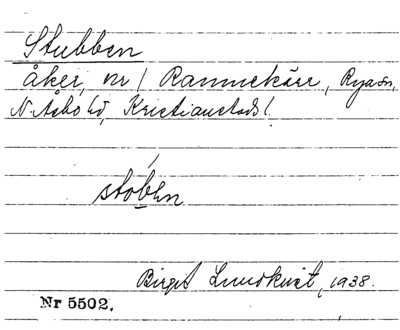 Stubben
åker, nr 1 Rammekärr, Rya sn,
N. Åsbo hd, Kristianstads l.
stob̲en
Birgit Lundkvist, 1938.
Nr 5502.